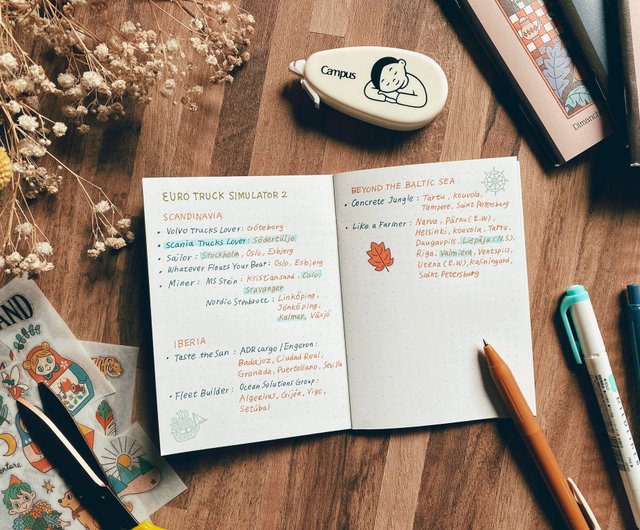 Campus
Dimanch
LAND
enture
EURO TRUCK SIMULATOR 2
SCANDINAVIA
• Volvo Trucks Lover: Göteborg
• Scania Trucks Lover: Södertälje
• Sailor: Stockholm, Oslo, Esbjerg
• Whatever Floats Your Boat: Oslo, Esbjerg
• Miner: MS Stein: Kristiansand, Oslo,
Stavanger
Nordic Stenbrott: Linköping,
Jönköping,
Kalmar, Växjö
IBERIA
• Taste the Sun: ADR cargo / Engeron:
Badajoz, Ciudad Real,
Granada, Puertollano, Sevilla
• Fleet Builder: Ocean Solutions Group:
Algeciras, Gijón, Vigo,
Setúbal
BEYOND THE BALTIC SEA
• Concrete Jungle: Tartu, Kouvola,
Tampere, Saint Petersburg
• Like a Farmer: Narva, Pärnu (E.W),
Helsinki, Kouvola, Tartu,
Daugavpils, Liepāja (N.S),
Riga, Valmiera, Ventspils,
Utena (E.W), Kaliningrad,
Saint Petersburg